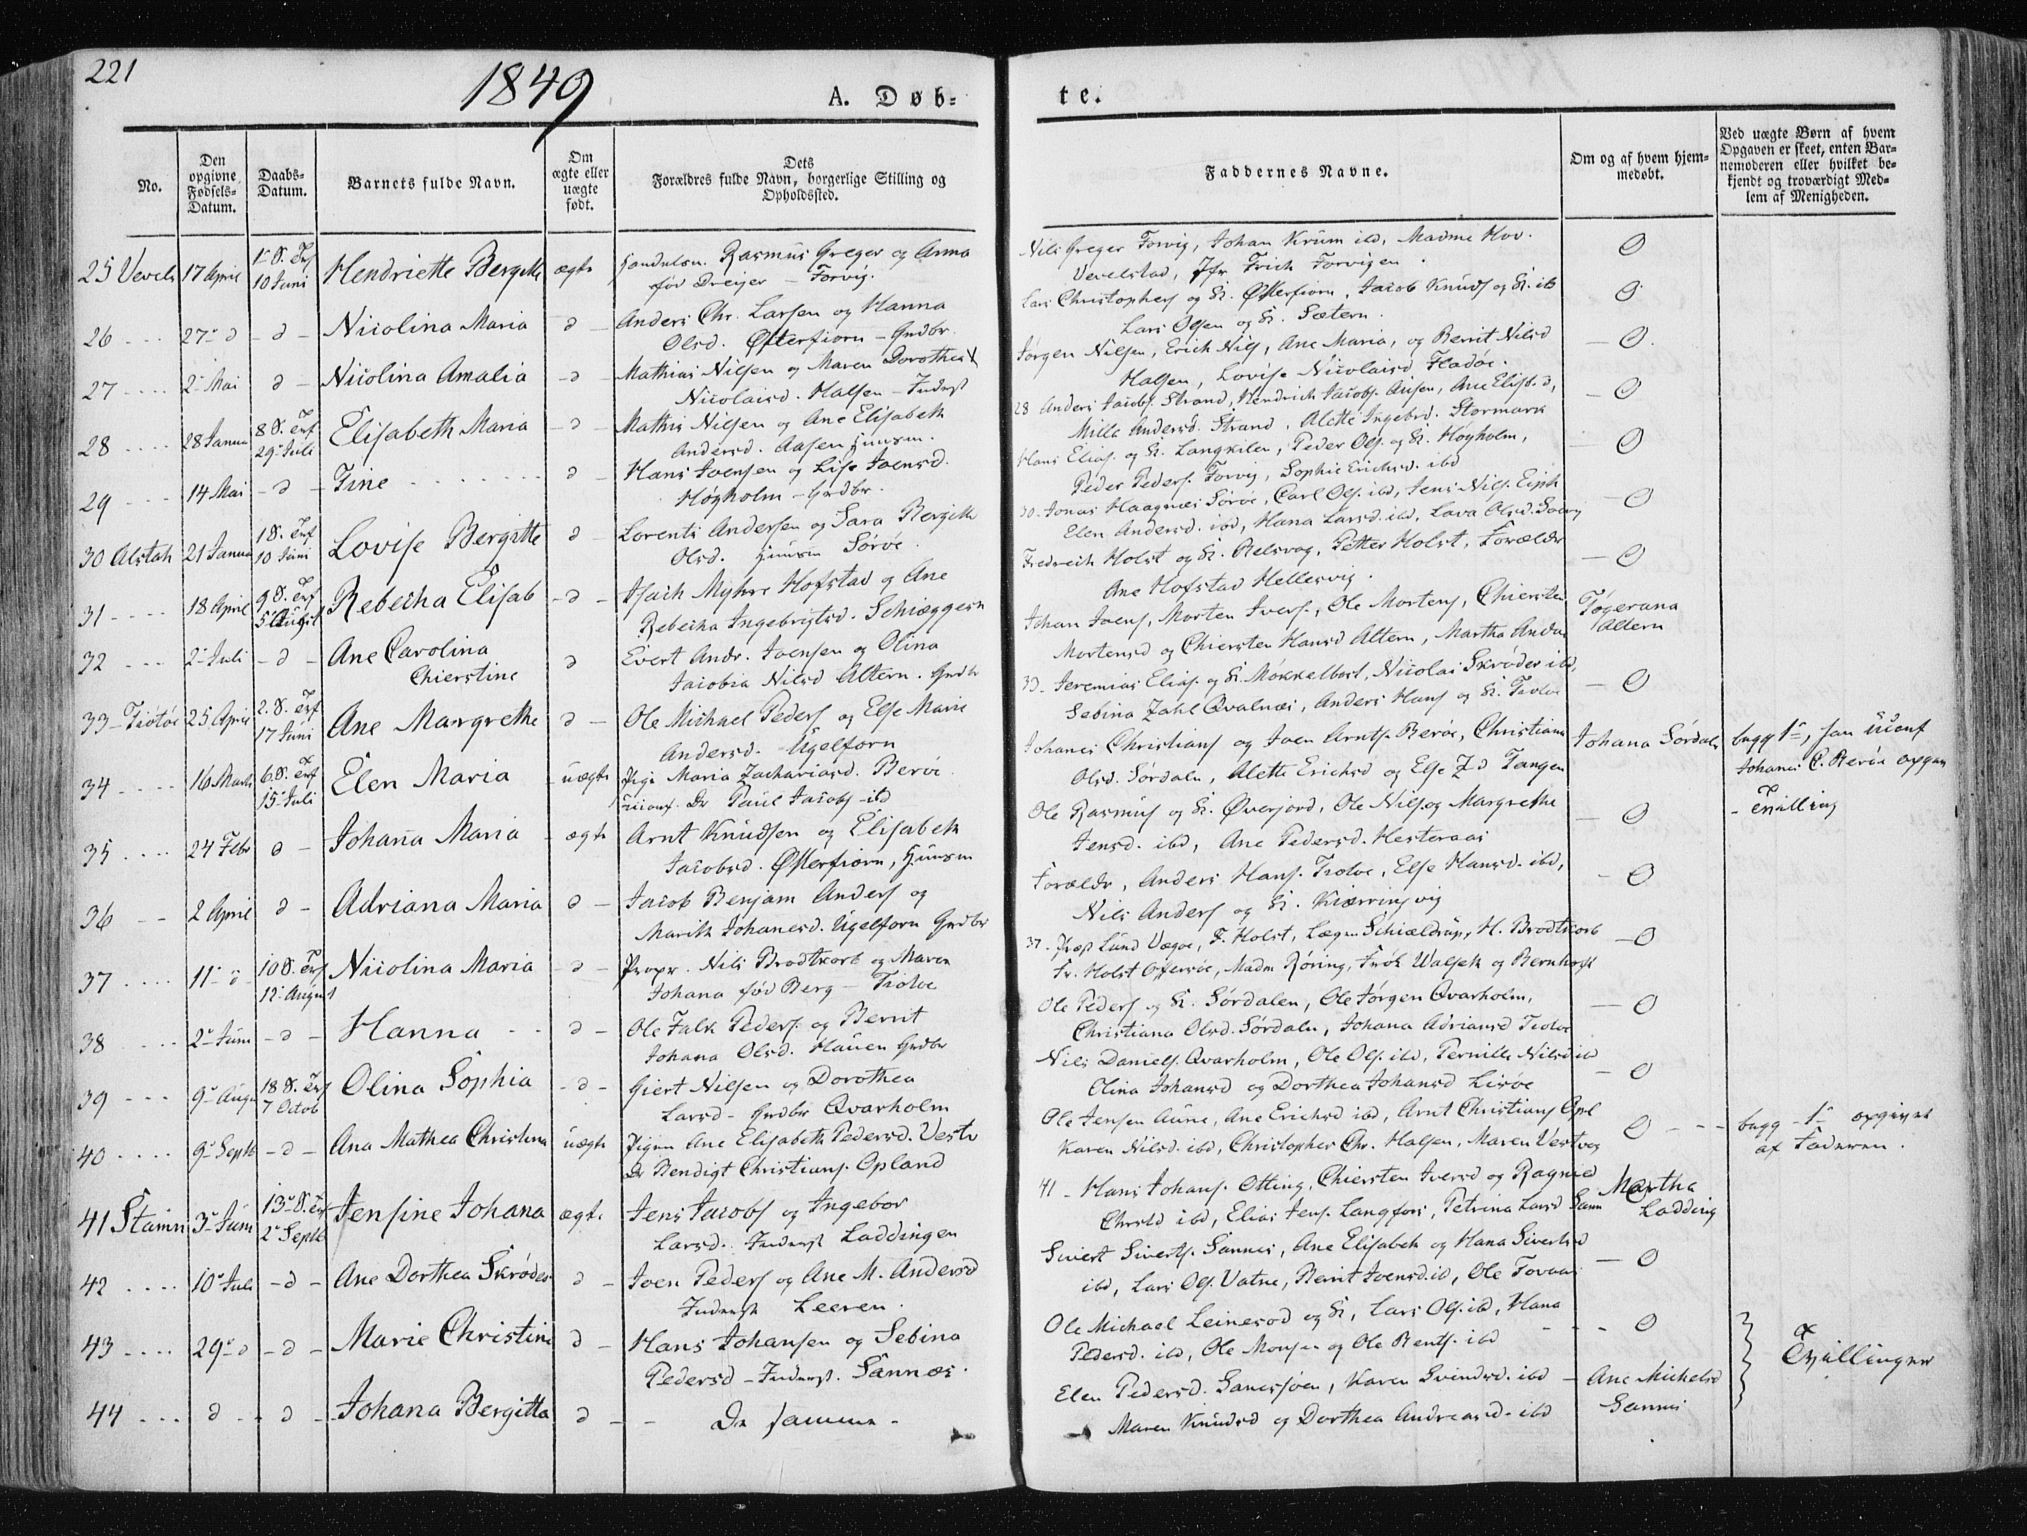 221
1849
A. Døb-
te.
No.
Den opgivne Fødsels-Datum.
Daabs-Datum.
Barnets fulde Navn.
Om ægte eller uægte født.
Dets Forældres fulde Navn, borgerlige Stilling og Opholdssted.
Faddernes Navne.
Om og af hvem hjem-medøbt.
Ved uægte Børn af hvem Opgaven er skeet, enten Bar-nemoderen eller hvilket be-kjendt og troværdigt Med-lem af Menigheden.
25 Vevels 17 April 10 Juni Hendriette Bergitte ægte Rasmus Greger og Anna
født Dreijer - Forvig.
Nils Greger Forvig, Johan Krum ibd, Madme Hov.
Vevelstad, Jfr Frich Forvigen.
26 27 d - d - Nicolina Maria d - Anders Chr. Larsen og Hanna
Olsd. Østerfiorn - Grdbr.
Lars Christophers og K. Østerfiorn, Jacob Knuds og K. ib
Lars Olsen og K. Sætern.
27 2 Mai d - Nicolina Amalia - d - Mathias Nilsen og Maren Dorothea
Nicolaisd. Halsen - Inderst
Jørgen Nilsen, Erich Nils, Ane Maria, og Berrit Nilsd
Halsen, Lovise Nicolaisd Fladøe.
28 28 Janua 8 S. Trf 29 Juli Elisabeth Maria - d - Mathis Nilsen og Ane Elisabeth
Andersd. Aasen Huusm.
28 Anders Jacobs. Strand, Hendrich Jacobs. Aasen, Ane Elisb. d,
Milla Andersd. Strand, Alette Ingebrd. Stormark
29 14 Mai - d - Tine d - Hans Joensen og Lise Joensd.
Høgholm - Grdbr.
Hans Elias. og K. Langkilen, Peder Ols. og K. Høgholm,
Peder Peders. Forvig, Sophie Erichsd. ibd
30 Alstah 21 Janua 1 S. Trf 10 Juni Lovise Bergitte d - Lorents Andersen og Sara Bergitte
Olsd. Huusm Sørøe.
30 - Jonas Haagnæs Sørøe, Carl Ols. ibd, Jens Nils.
Elen Andersd. ibd, Hana Larsd. ibd, Lava Olsd.
31 18 April 9 S. Trf 5 August Rebecha Elisab - d - Isach Myhre Hofstad og Ane
Rebecha Ingebrigtsd.
Fredrich Holst og K. Belsvog, Petter Holst, Forældr
Ane Hofstad Hellesvig.
32 2 Juli - d - Ane Carolina
Chierstine d Evert Andr. Joensen og Olina
Jacobia Nilsd Altern. Grdbr
Johan Joens, Morten Ivers., Ole Mortens, Chiersten
Mortensd og Chiersten Hansd Altern, Martha Andrs
Tøgerana
Altern
33 - Tiøtøe 25 April 2. S. Trf 17 Juni Ane Margrethe d - Ole Michael Peders og Else Marie
Andersd. Ugelforn
33 - Jeremias Elias. og K. Møkkelbost, Nicolai Skrøder ibd,
Sebina Zahl Qvalnæs, Anders Hans og K. Tiotøe
34 16 Marts 6. S. Trf 15 Juli Elen Maria - uægte Pige Maria Zachariasd. Berøe.
Paul Jacobs ibd
Johanes Christians og Joen Arnts. Berøe, Christiana
Olsd. Sørdalen, Alette Erichsd og Else Z d Tangen
Johana Sørdalen
begge 1ste,
Johanes C. Berøe opgav
- Tvilling
35 24 Febr d - Johana Maria - ægte Arnt Knudsen og Elisabeth
Jacobsd. Østerfiorn, Huusm
Ole Rasmus og K. Øverjord, Ole Nils og Margrethe
Jensd. ibd, Ane Pedersd. Hesteraas
36 2 April d - Adriana Maria d - Jacob Benjam Anders og
Marith Johanesd. Ugelforn Grdbr
Forældr, Anders Hans. Tiotøe, Else Hansd. ibd,
Nils Anders og K. Kiærringvig
37 11 d 10 S. Trf 12 August Nicolina Maria - d - Propr. Nils Brodtkorb og Maren
Johana fød Berg - Tiotøe
37 - Prop Lund Vægøe, F. Holst, H. Brodtkorb
Fr. Holst Offersøe, Madm Røring,
38 2 Juni - d - Hanna d - Ole Falk Peders. og Berrit
Johana Olsd. Hauen Grdbr
Ole Peders og K. Sørdalen, Ole Jørgen Qvarholm,
Christiana Olsd. Sørdalen, Johana Adriansd Tiotøe
39 9 Augu 18 S. Trf 7 Octob Olina Sophia - d - Giert Nilsen og Dorothea
Larsd - Grdbr Qvarholm
Nils Daniels. Qvarholm, Ole Ols. ibd, Pernille Nilsd ibd
Olina Johansd og Dorthea Johansd Lisøe
40 9 Septb - d - Ana Mathea Christina uægte Pigen Ane Elisabeth Pedersd.
Bendigt Christians. Opland
Ole Jensen Aune, Ane Erichsd ibd, Arnt Christians Opl
Karen Nilsd. ibd, Christopher Chr. Halsen, Maren Vestvog
begg - 1ste opgivet
af Faderen.
41 Stamn 3 Juni 13 S. Trf 2 Septb Jensine Johana ægte Jens Jacobs og Ingebor
Larsd. Inderst Laddingen
41 - Hans Johans. Otting, Chiersten Iversd og Ragnild
Chrstd ibd, Elias Jens. Langfors, Petrina Larsd
Martha
Ladding
42 10 Juli - d - Ane Dorthea Skrøder d - Joen Peders og Ane M. Andersd
Inderst Leeren.
Sivert Siverts. Sannes, Ane Elisabeth og Hana Sivertsd
ibd, Lars Ols. Vatne, Berit Joensd. ibd, Ole
43 29 d - d - Marie Christine d - Hans Johansen og Sebina
Pedersd - Inderst. Sannæs.
Ole Michael Leinesod og K., Lars Ols. ibd, Hana
Pedersd. ibd, Ole Monsen og Ole Bents. ibd
Tvillinger
44 d - d - Johana Bergitta d - De samme -
Elen Pedersd. Sanesjøen, Karen Svindsd. ibd
Maren Knudsd og Dorthea Andreasd. ibd
Ane Michelsd
Sannes